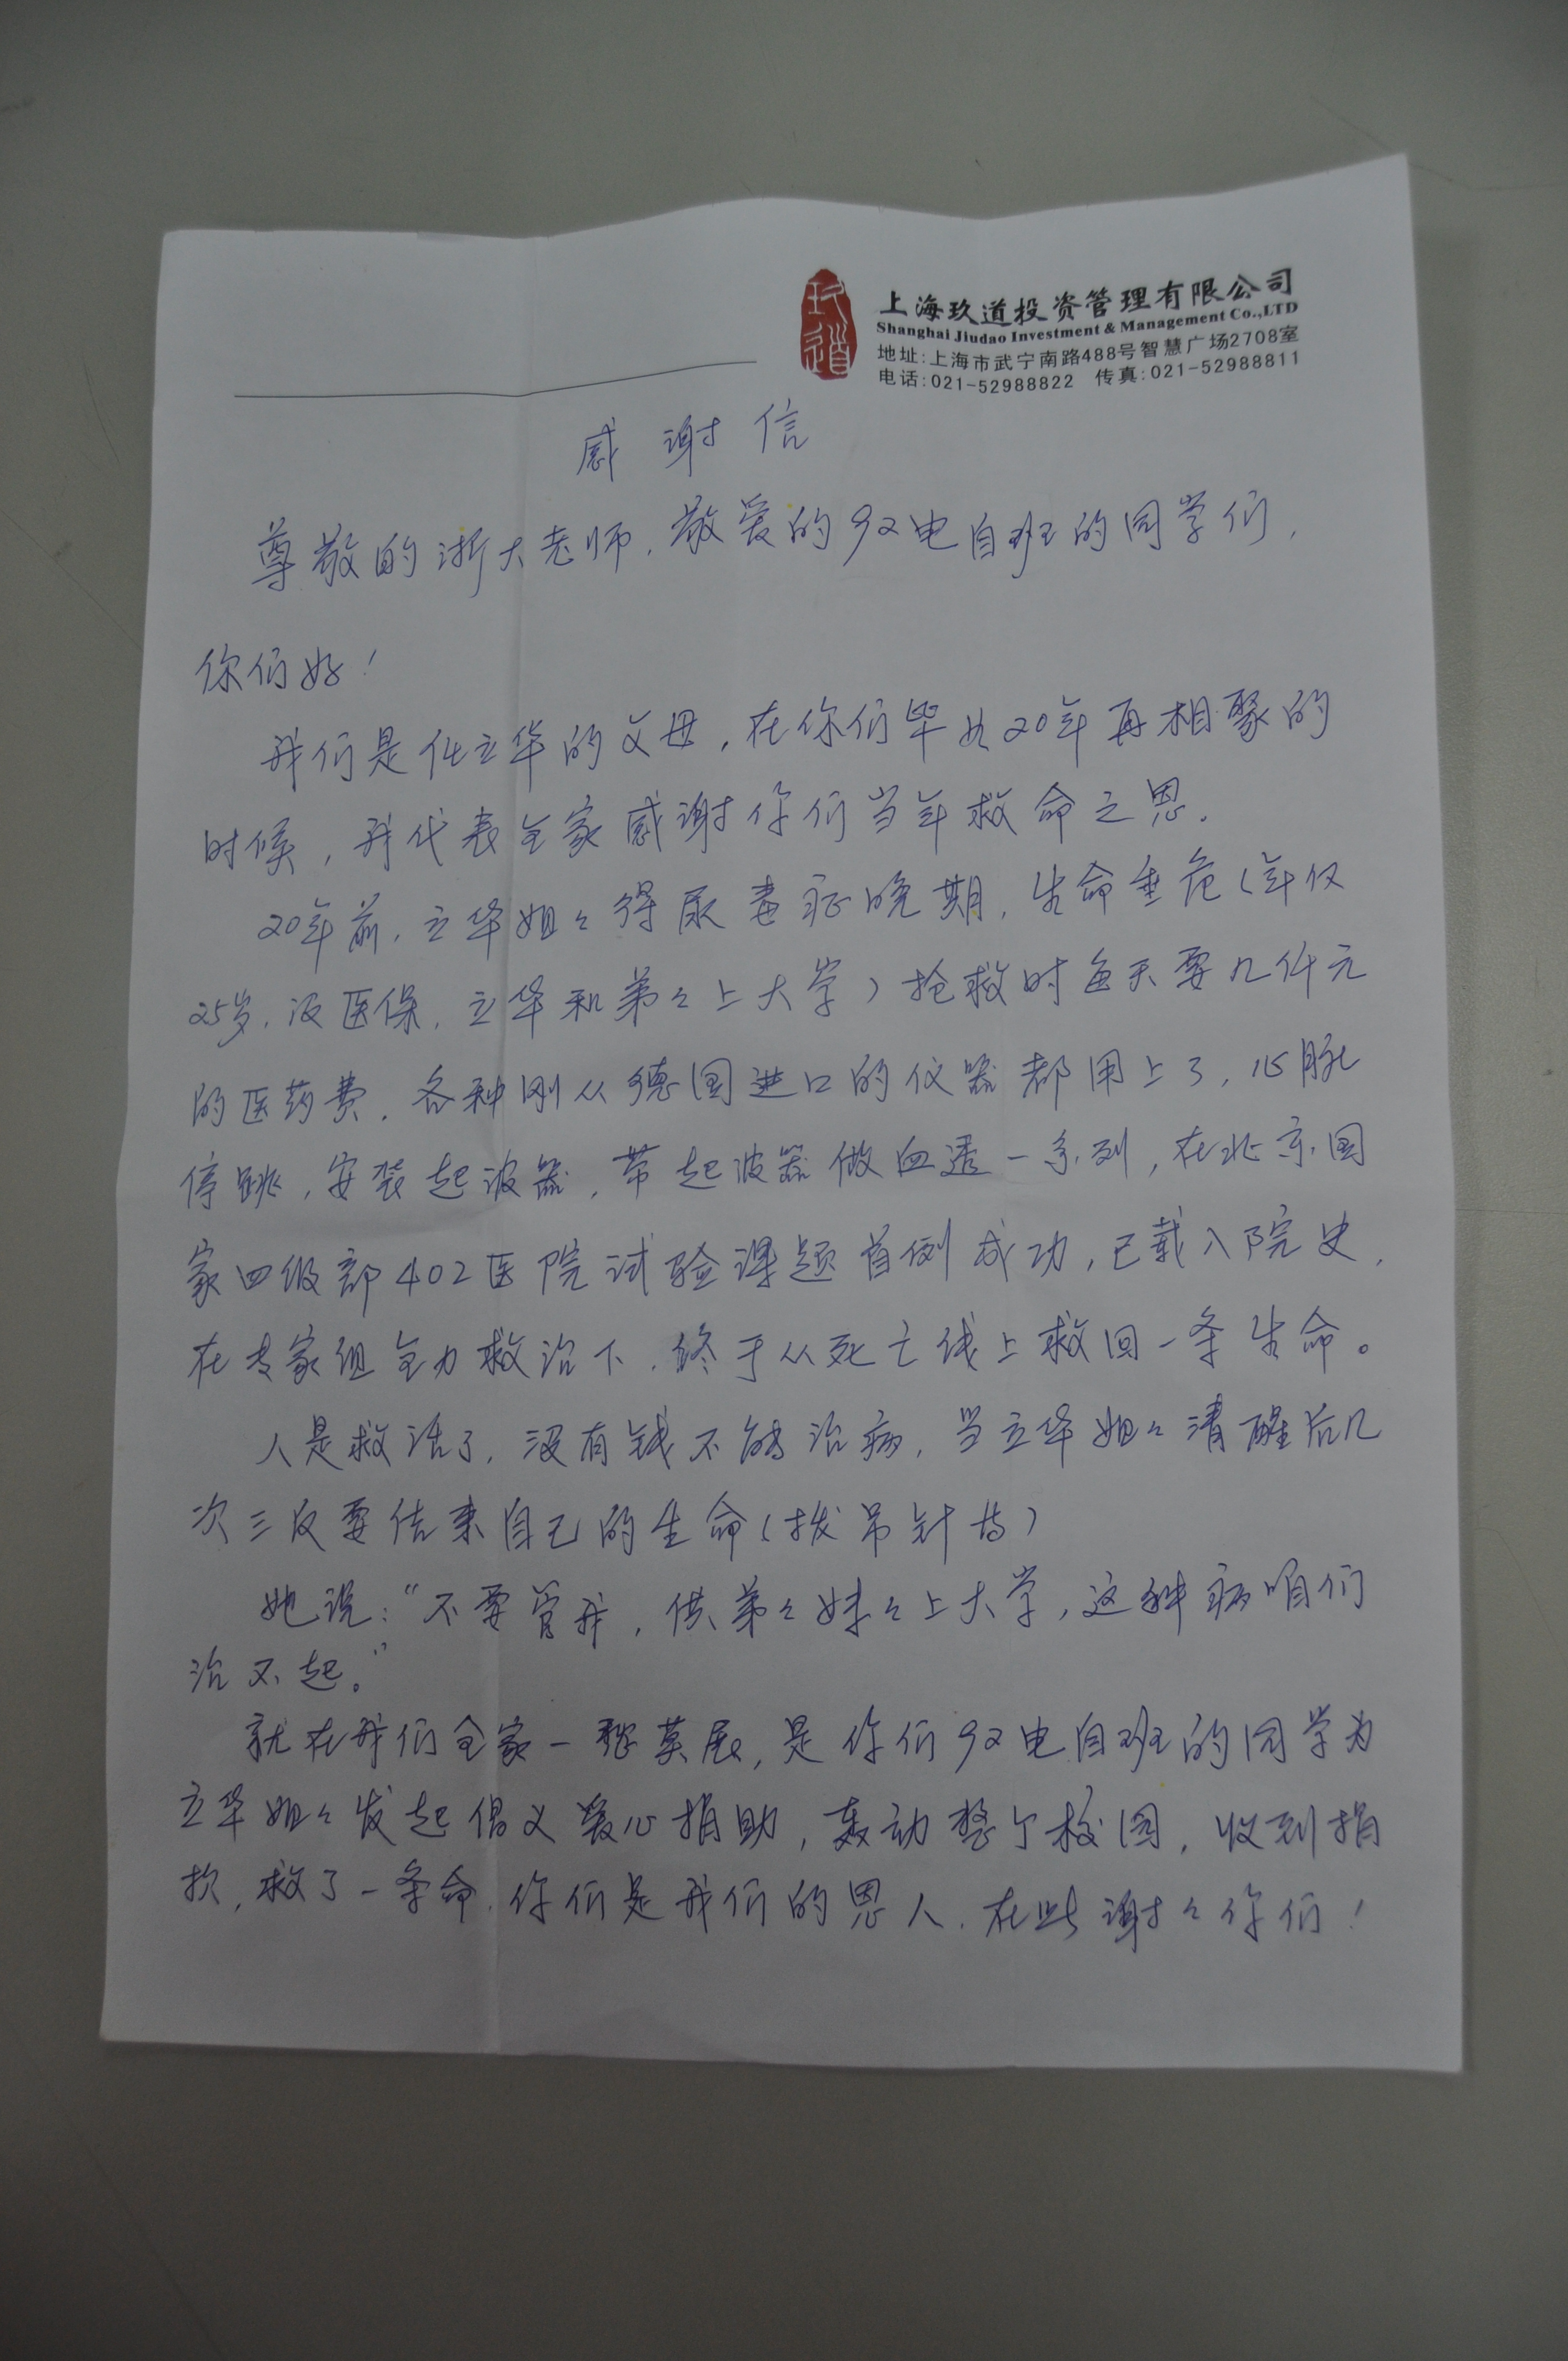 玖道
上海玖道投资管理有限公司
Shanghai Jiudao Investment & Management Co.,LTD
地址:上海市武宁南路488号智慧广场2708室
电话:021-52988822 传真:021-52988811
感谢信
尊敬的浙大老师,敬爱的92电自班的同学们,
你们好!
我们是任立华的父母,在你们毕业20年再相聚的
时候,我代表全家感谢你们当年救命之恩.
20年前,立华姐々得尿毒症晚期,生命垂危(年仅
25岁,没医保,立华和弟々上大学)抢救时每天要几仟元
的医药费,各种刚从德国进口的仪器都用上了,心脉
停跳,安装起波器,带起波器做血透一系列,在北京国
家四级部402医院试验课题首例成功,已载入院史,
在专家组全力救治下,终于从死亡线上救回一条生命。
人是救活了,没有钱不能治病,当立华姐々清醒后几
次三反要结束自己的生命(拔吊针等)
她说:“不要管我,供弟々妹々上大学,这种病咱们
治不起。”
就在我们全家一愁莫展,是你们92电自班的同学为
立华姐々发起倡义爱心捐助,轰动整个校园,收到捐
款,救了一条命.你们是我们的恩人.在此谢々你们!